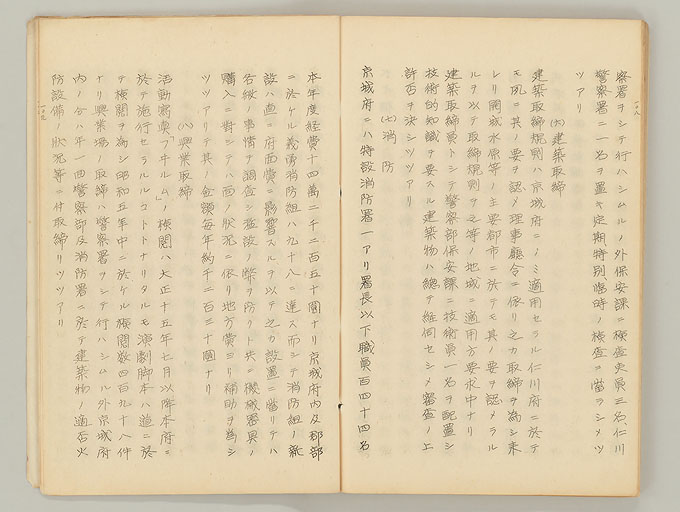 察署ヲシテ行ハシムルノ外保安課ニ検査吏員三名、仁川
警察署ニ一名ヲ置キ定期特別臨時ノ検査ニ當ラシメツ
ツアリ
(六)建築取締
建築取締規則ハ京城府ニノミ適用セラル仁川府ニ於テ
モ夙ニ其ノ要ヲ認メ理事廳令ニ依リ之カ取締ヲ為シ来
レリ開城水原等ノ主要都市ニ於テモ其ノ要ヲ認メラル
ルヲ以テ取締規則ヲ之等ノ地域ニ適用方要求中ナリ
建築取締員トシテ警察部保安課ニ技術員一名ヲ配置シ
技術的知識ヲ要スル建築物ハ總テ経伺セシメ審査ノ上
許否ヲ決シツツアリ
(七)消防
京城府ニハ特設消防署一アリ署長以下職員百四十四名
本年度経費十四萬二千二百五十圓ナリ京城府内及郡部
ニ於ケル義勇消防組ハ九十八ニ達ス而シテ消防組ノ新
設ハ直ニ府面費ニ影響スルヲ以テ之カ設置ニ當リテハ
各般ノ事情ヲ調査シ濫設ノ弊ヲ防クト共ニ機械器具ノ
購入ニ對シテハ面ノ状況ニ依リ地方費ヨリ補助ヲ為シ
ツツアリテ其ノ金額毎年約千二百三十圓ナリ
(八)興業取締
活動寫真「フヰルム」ノ検閲ハ大正十五年七月以降本府ニ
於テ施行セラルルコトトナリタルモ演劇脚本ハ道ニ於
テ検閲ヲ為シ昭和五年中ニ於ケル検閲数四百九十八件
ナリ興業場ノ取締ハ警察署ヲシテ行ハシムル外京城府
内ノ分ハ年一回警察部及消防署ニ於テ建築物ノ適否火
防設備ノ状況等ニ付取締リツツアリ